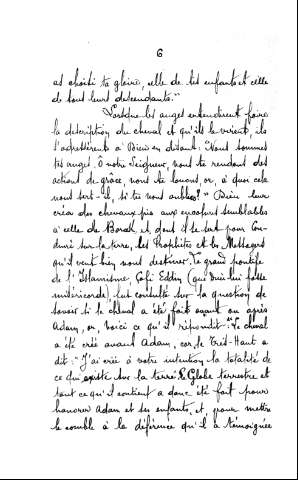 6
as choisi ta gloire, celle de tes enfants et celle
de tout leurs descendants."
Lorsque les anges entendirent faire
la description du cheval et qu'ils le virent, ils
s'adressèrent à Dieu en disant: Nous sommes
tes anges. Ô notre Seigneur, nous te rendons des
actions de grâce, nous te louons, or, à quoi cela
nous sert-il, si tu nous oublies?" Dieu leur
créa des chevaux pie aux encolures semblables
à celle de Borak, et dont il se sert pour con-
duire sur la terre, les Prophètes et les Messagers
qu'il veut bien nous destiner. Le grand pontife
de l'Islamisme, Eddin (que Dieu lui fasse
miséricorde), fut consulté sur la question de
savoir si le cheval a été fait avant ou après
Adam, or, voici ce qu'il répondit: "Le cheval
a été créé avant Adam, car, le Très-Haut a
dit: "J'ai créé à votre intention la totalité de
ce qui existe sur la terre. Le Globe terrestre et
tout ce qu'il contient a donc été fait pour
honorer Adam et ses enfants, et, pour mettre
le comble à la déférence qu'il a témoignée